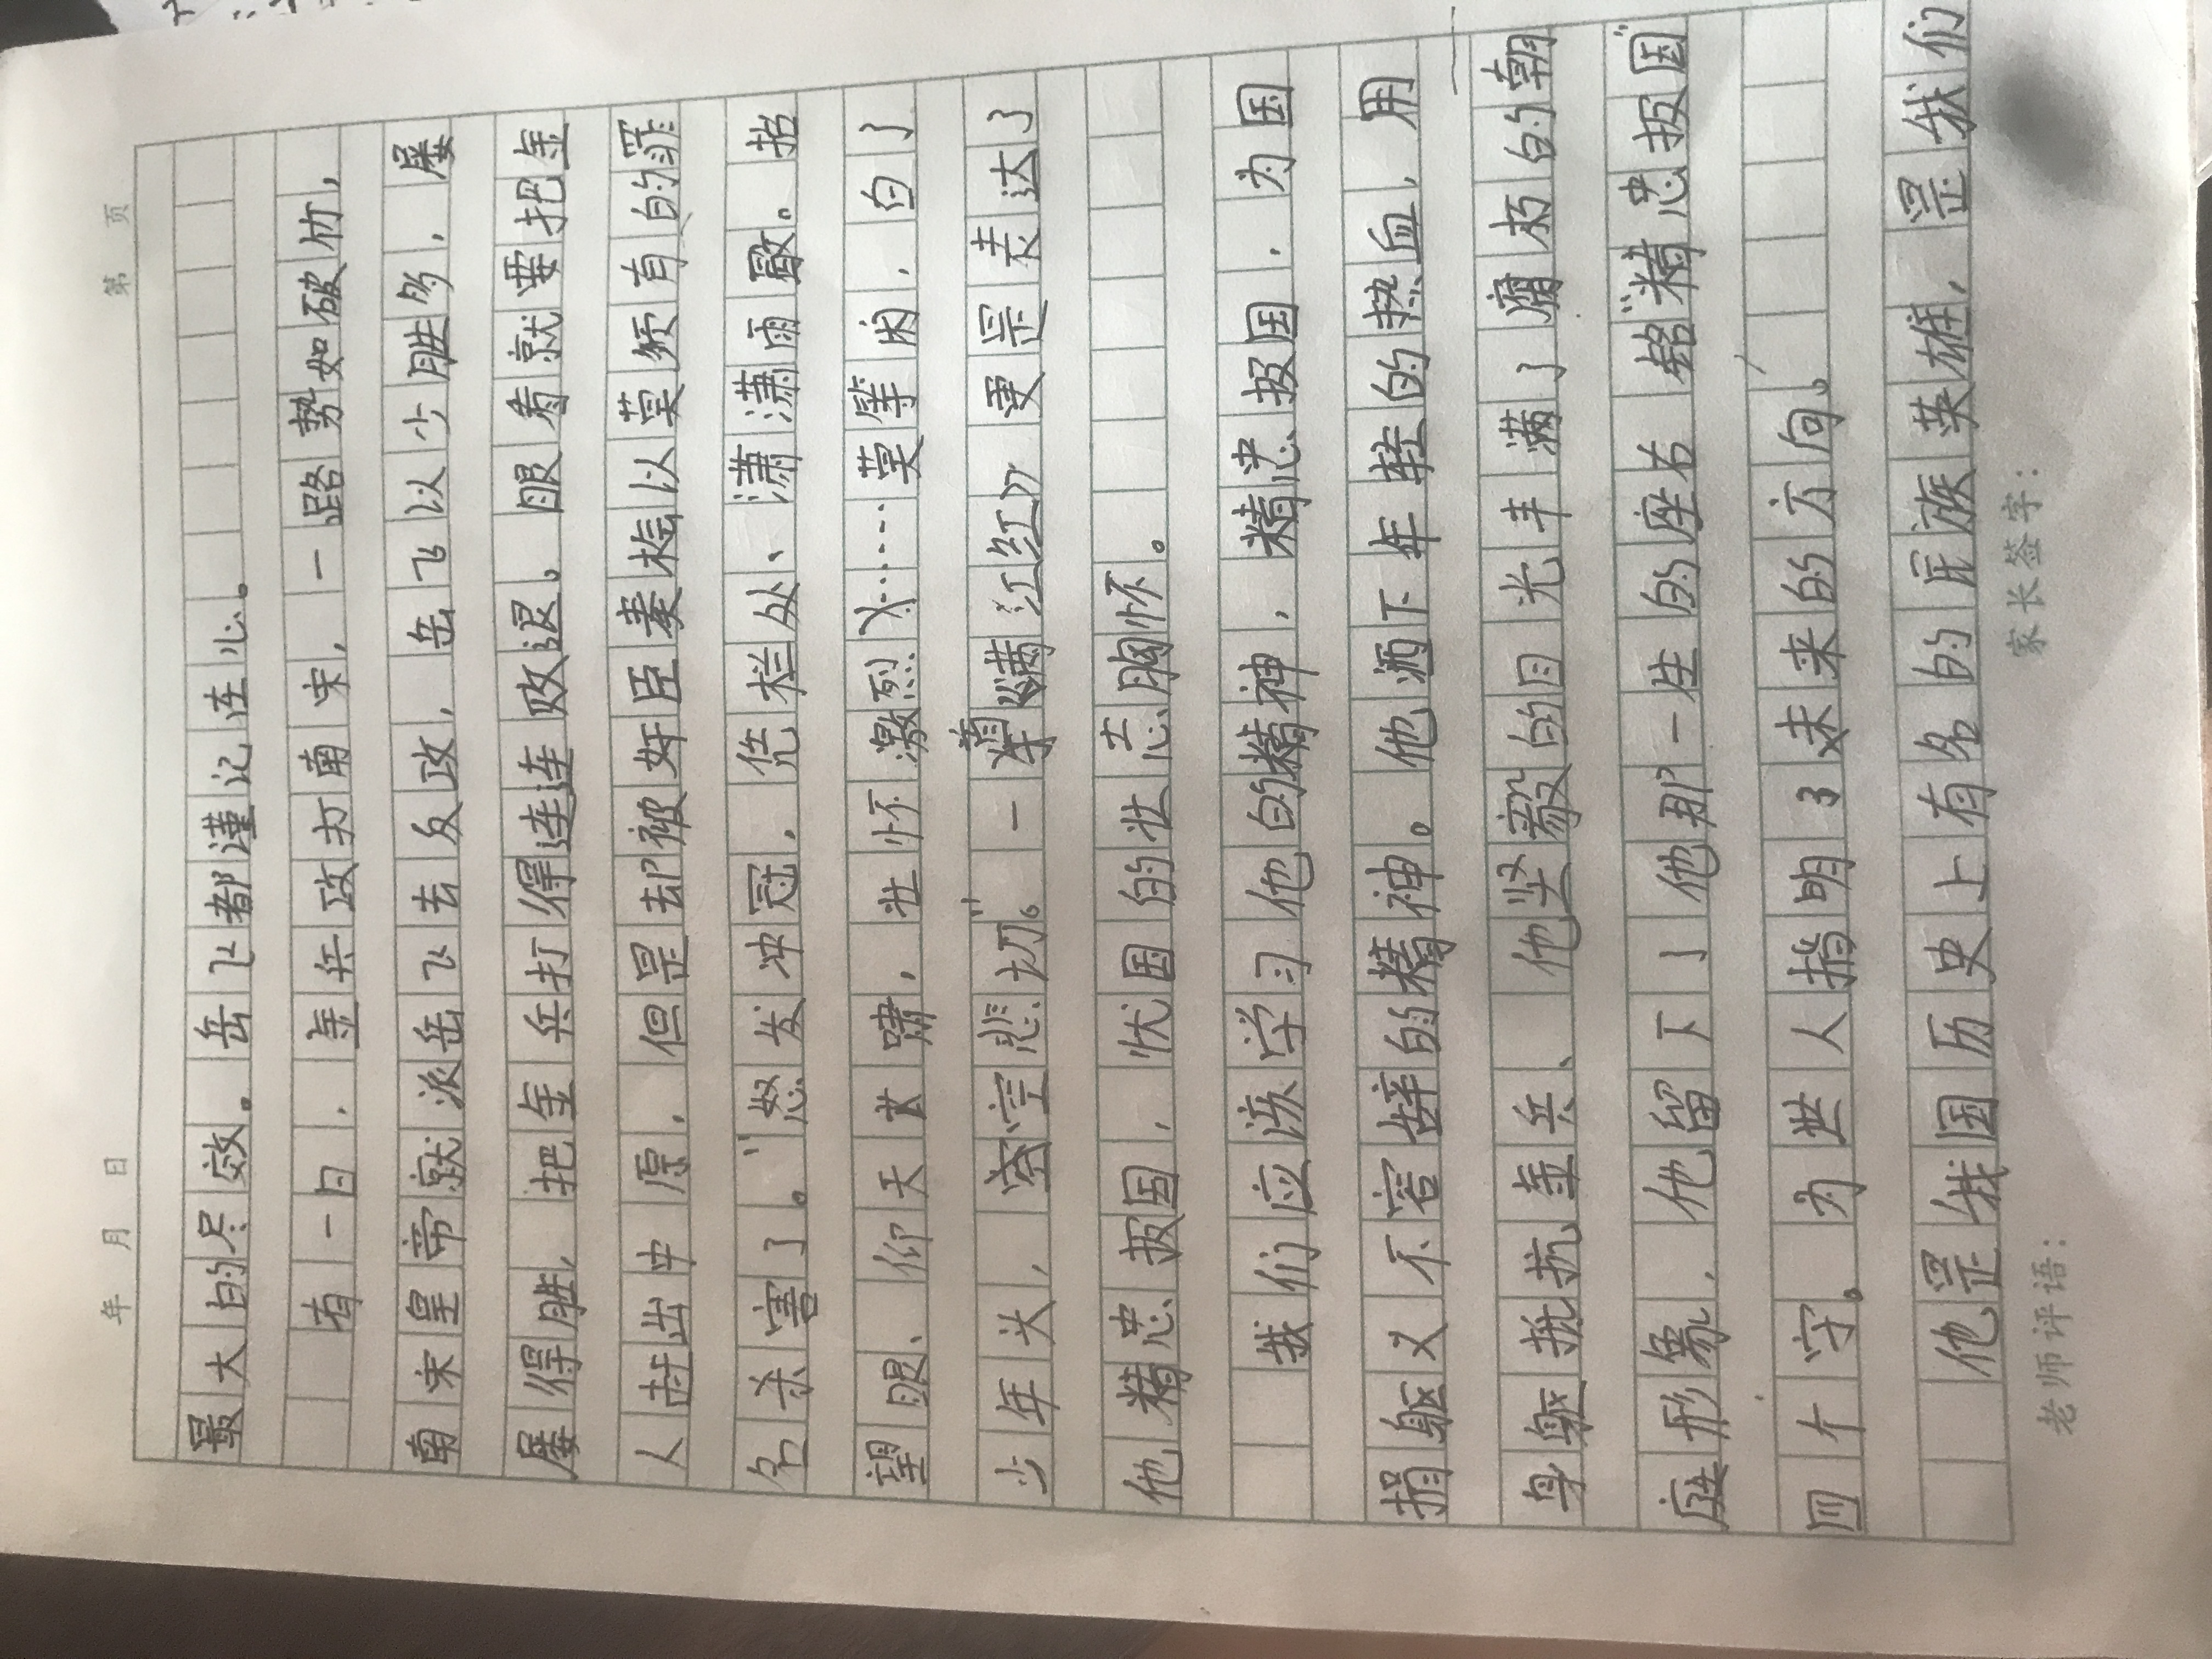 年 月 日 第 页
最大的尽效。岳飞都谨记在心。
有一日，金兵攻打南宋，一路势如破竹，
南宋皇帝就派岳飞去反攻，岳飞以少胜多，屡
屡得胜，把金兵打得连连败退。眼看就要把金
人赶出中原，但是却被奸臣秦桧以莫须有的罪
名杀害了。"怒发冲冠，凭栏处、潇潇雨歇。抬
望眼、仰天长啸，壮怀激烈……莫等闲，白了
少年头，空空悲切"。一首《满江红》更是表达了
他精忠报国，忧国的壮志胸怀。
我们应该学习他的精神，精忠报国，为国
捐躯义不容辞的精神。他洒下年轻的热血，用
身躯抵抗金兵、他坚毅的目光丰满了腐朽的朝
庭形象，他留下了他那一生的座右铭"精忠报国"
四个字。为世人指明了未来的方向。
他是我国历史上有名的民族英雄，是我们
老师评语： 家长签字：